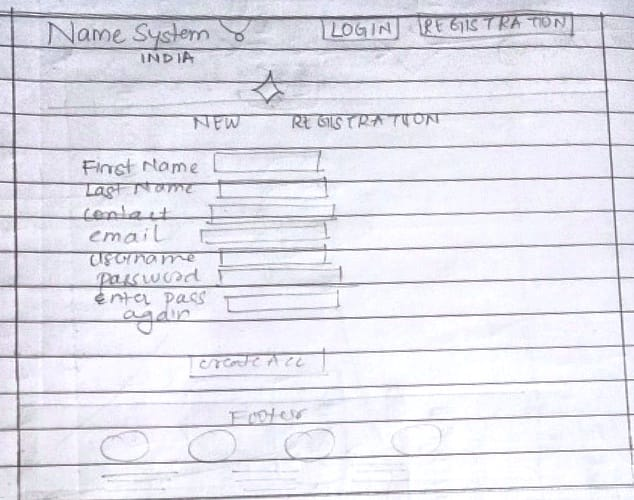 Name System LOGIN REGISTRATION
INDIA
NEW REGISTRATION
First Name
Last Name
contact
email
username
password
enter pass
again
create Acc
Footer